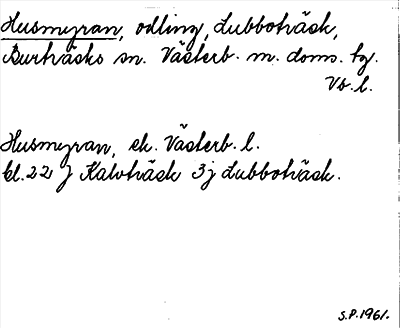 Husmyran, odling, Lubboträsk,
Burträsks sn. Västerb. m. doms. tg.
Vb. l.
Husmyran, ek. Västerb. l.
bl. 22 J Kalvträsk 3j Lubboträsk.
S.P. 1961.